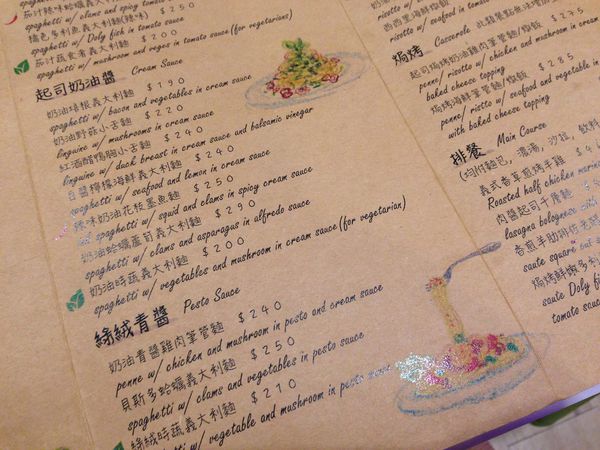 茄汁辣味蛤蠣義大利麵(辣味)
spaghetti w/ clams and spicy tomato
橘色多利魚義大利麵 $250
spaghetti w/ Doly fish in tomato sauce
茄汁蔬食素義大利麵 $200
spaghetti w/ mushroom and veges in tomato sauce (for vegetarians)
起司奶油醬 Cream Sauce
奶油培根義大利麵 $190
spaghetti w/ bacon and vegetables in cream sauce
奶油野菇小舌麵 $220
linguine w/ mushrooms in cream sauce
紅酒醋鴨胸小舌麵 $240
linguine w/ duck breast in cream sauce and balsamic vinegar
白醬檸檬海鮮義大利麵 $240
spaghetti w/ seafood and lemon in cream sauce
辣味奶油花枝墨魚麵 $250
spaghetti w/ squid and clams in spicy cream sauce
奶油蛤蠣蘆筍義大利麵 $290
spaghetti w/ clams and asparagus in alfredo sauce
奶油時蔬義大利麵 $200
spaghetti w/ vegetables and mushroom in cream sauce (for vegetarian)
綠絨青醬 Pesto Sauce
奶油青醬雞肉筆管麵 $240
penne w/ chicken and mushroom in pesto and cream sauce
貝斯多蛤蠣義大利麵 $250
spaghetti w/ clams and vegetables in pesto sauce
綠絨時蔬義大利麵 $210
spaghetti w/ vegetable and mushroom in pesto sauce
risotto w/
西西里海鮮燉飯
risotto w/ seafood in tomato
焗烤 Casserole
$275
起司焗烤奶油雞肉筆管麵/燉飯
penne/ risotto w/ chicken and mushroom in
baked cheese topping
焗烤海鮮筆管麵/燉飯 $285
penne/ risotto w/ seafood and vegetable in
with baked cheese topping
排餐 Main Course
(均附麵包, 濃湯, 沙拉, 飲料
義式香草煎烤半雞 $4
Roasted half chicken marin
肉醬起司千層麵
lasagna bolognese with
香煎手助
saute square but
焗烤鮮嫩多利
saute Doly fi
tomato sau